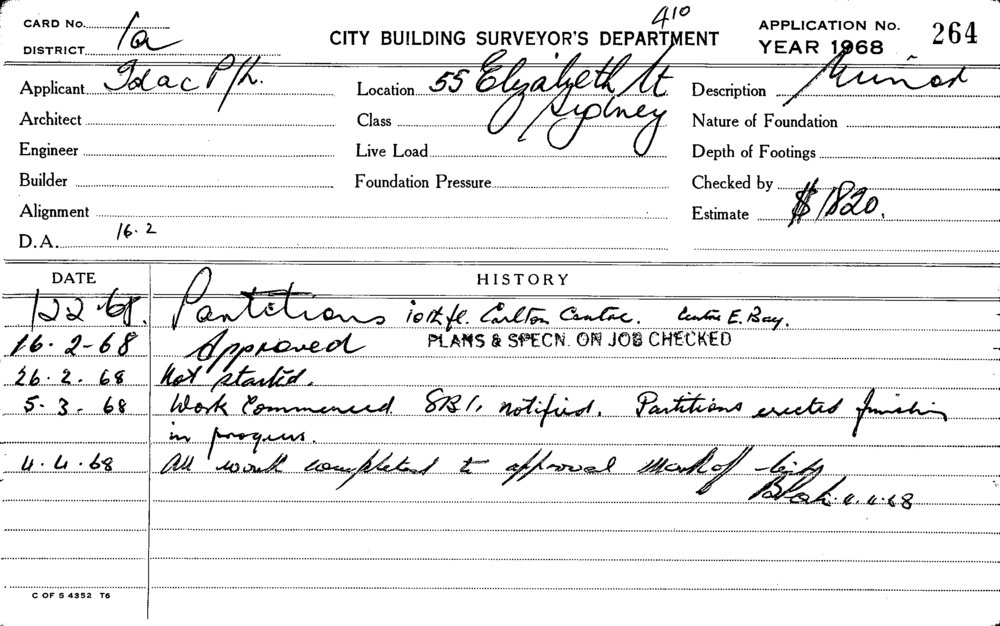 410
CARD No. 1a
CITY BUILDING SURVEYOR'S DEPARTMENT
APPLICATION No. 264
DISTRICT
YEAR 1968
Applicant P/L.
Location 55 Elizabeth St Sydney
Description
Architect
Class
Nature of Foundation
Engineer
Live Load
Depth of Footings
Builder
Foundation Pressure
Checked by
Alignment
Estimate $1820.
D.A. 16.2
DATE HISTORY
1 2 2 68. Partitions 10th fl. Carlton Centre. Centre E. Bay.
16.2-68 Approved PLANS & SPECN. ON JOB CHECKED
26.2.68 Not started.
5-3.68 Work Commenced. notified. Partitions erected finishing
in progress.
4.4.68 All work completed to approval
4.4.68
C OF S 4352 T6